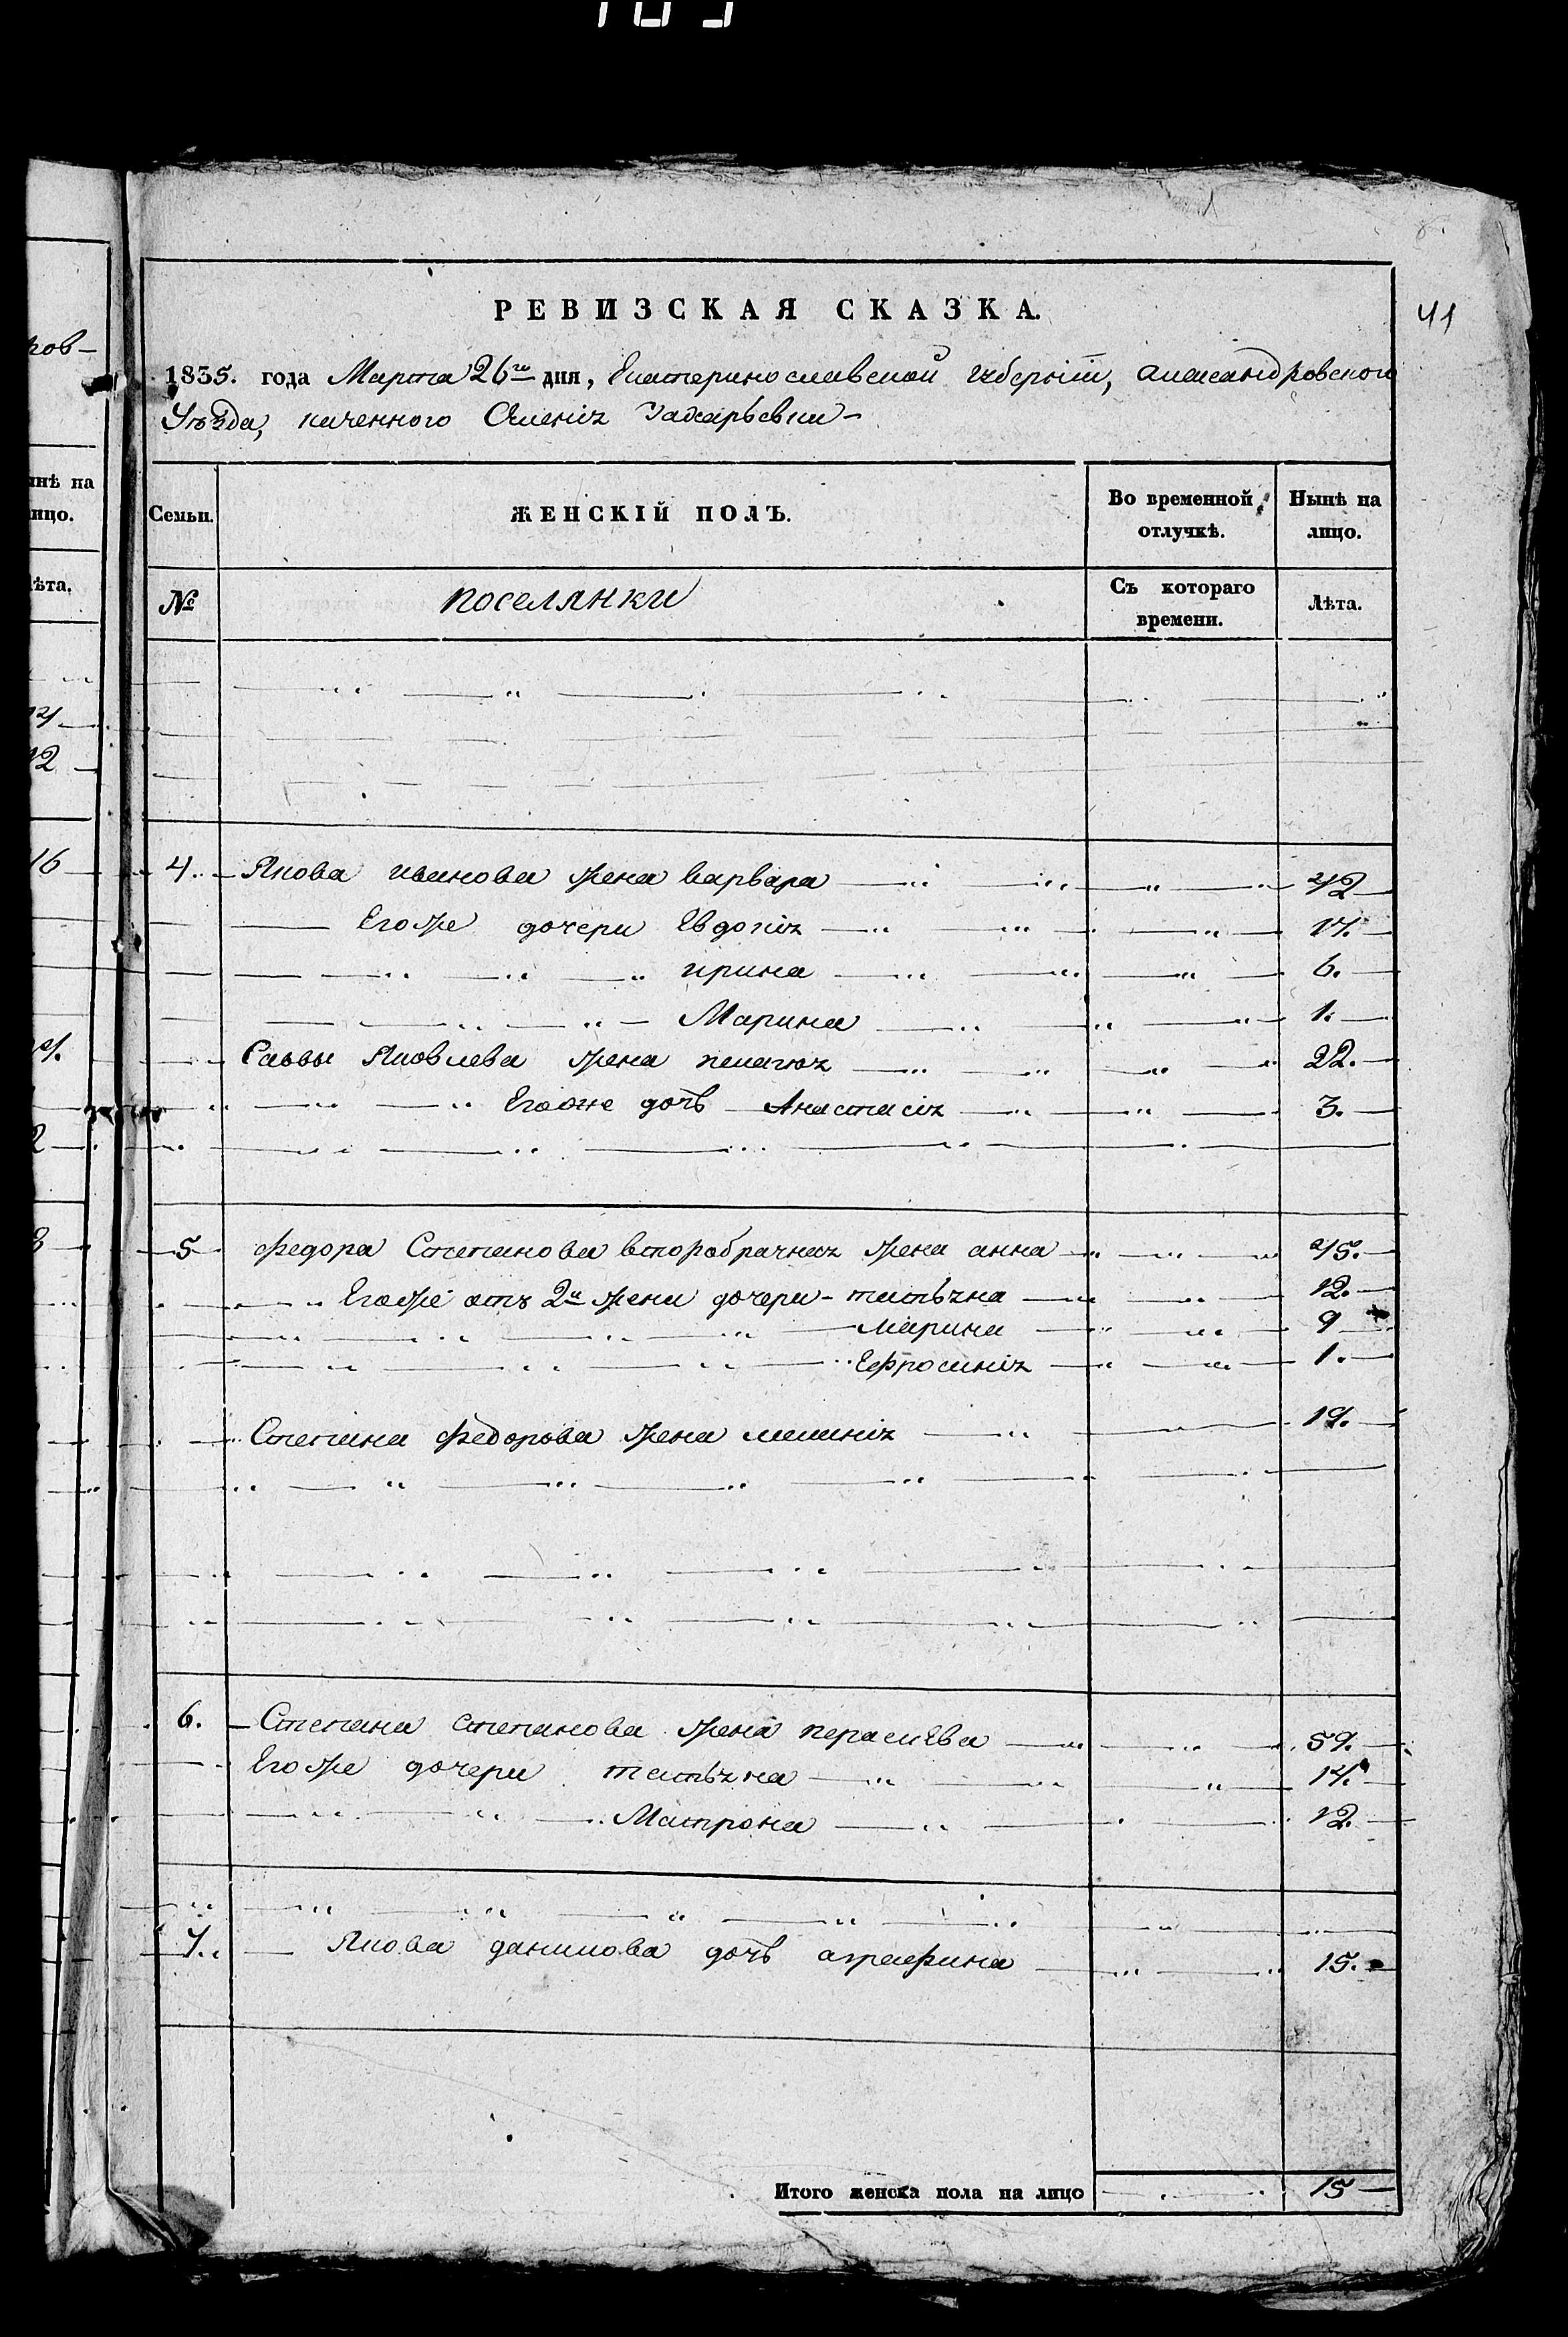 41
РЕВИЗСКАЯ СКАЗКА.
1835. года Марта 26го дня, Екатеринославской губерніи, александровского
Уезда, казенного Селенія Захарьевки
Семьи.
ЖЕНСКІЙ ПОЛЪ.
Во временной отлучкѣ.
Нынѣ на лицо.
№
поселянки
Съ котораго времени.
Лѣта.
4. Якова иванова жена варвара 42
Егоже дочери Евдокія 17.
ирина 6.
Марина 1.
Саввы Яковлева жена пелагея 22.
Егоже дочь Анастасія 3.
5 федора Степанова второбрачная жена анна 45.
Егоже отъ 2й жены дочери татьяна 12.
Марина 9
Ефросинія 1.
Степана федорова жена меланія 19.
6. Степана степанова жена парасьева 59.
Егоже дочери татьяна 14.
Матрона 12.
7. Якова данилова дочь аграфина 15.
Итого женска пола на лицо 15
ков-
нѣ на
ицо.
ѣта.
12
16